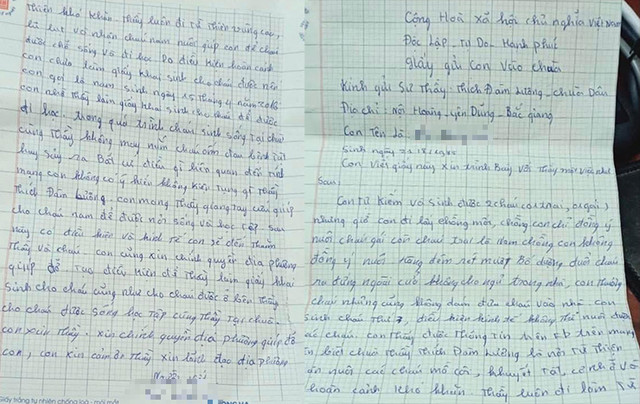 Cộng Hoà xã hội chủ nghĩa Việt Nam
Độc Lập _ Tự Do _ Hạnh phúc
Giấy gửi Con Vào chùa
Kính gửi Sư Thầy Thích Đàm Lương _ chùa Dẩn
Địa chỉ: Nội Hoàng _ Yên Dũng _ Bắc giang
Con Tên là
Sinh ngày
Con Viết giấy này xin trình Bày với Thầy một việc như
sau:
Con Từ kiếm và sinh được 2 cháu (1 trai, 1 gái)
nhưng giờ con đi lấy chồng mới, chồng con chỉ đồng ý
nuôi cháu gái còn cháu trai là Nam chồng con không
đồng ý nuôi hàng đêm rét mướt Bố dượng đuổi cháu
ra đứng ngoài cửa không cho ngủ trong nhà, con thương
cháu nhưng cũng không dám đưa cháu vào nhà. con
điều kiện kinh tế không thể nuôi được
các cháu. con thấy được Thông tin trên Fb trên mạng
biết chùa Thầy Thích Đàm Lương là nơi Từ Thiện
nuôi các cháu mồ côi, khuyết Tật, cơ nhỡ và
hoàn cảnh khó khăn. Thầy luôn đi làm Từ
Thiện khó khăn. Thầy luôn đi Từ Thiện vùng cao,
lũ lụt và nhân cháu nam nuôi giúp con để cháu
được chỗ sống và đi học. Do điều kiện hoàn cảnh
con chưa làm giấy khai sinh cho cháu được nên
con gọi là nam sinh ngày 25 Tháng 4 năm 2016
con nhờ Thầy làm giấy khai sinh cho cháu để được
đi học. trong quá trình cháu sinh sống tại chùa
cùng Thầy không may nếu cháu ốm đau bệnh Tật
hay sảy ra Bất cứ điều gì liên quan đến Tính
mạng con không có ý kiến không kiện tụng gì Thầy
Thích Đàm Lương. con mong Thầy giang tay cứu giúp
cho cháu nam để được nơi sống và học tập sau
này có điều kiện về kinh Tế con sẽ đến thăm
Thầy và cháu. con cũng xin chính quyền địa phương
giúp đỡ Tạo điều kiện để Thầy làm giấy khai
sinh cho cháu cũng như cho cháu được ở bên Thầy
cho cháu được sống học tập cùng Thầy Tại chùa.
con xin Thầy, xin chính quyền địa phương giúp đỡ
con, con xin cảm ơn Thầy xin lãnh đạo địa phương
Giấy trắng tự nhiên chống lóa - mỏi mắt